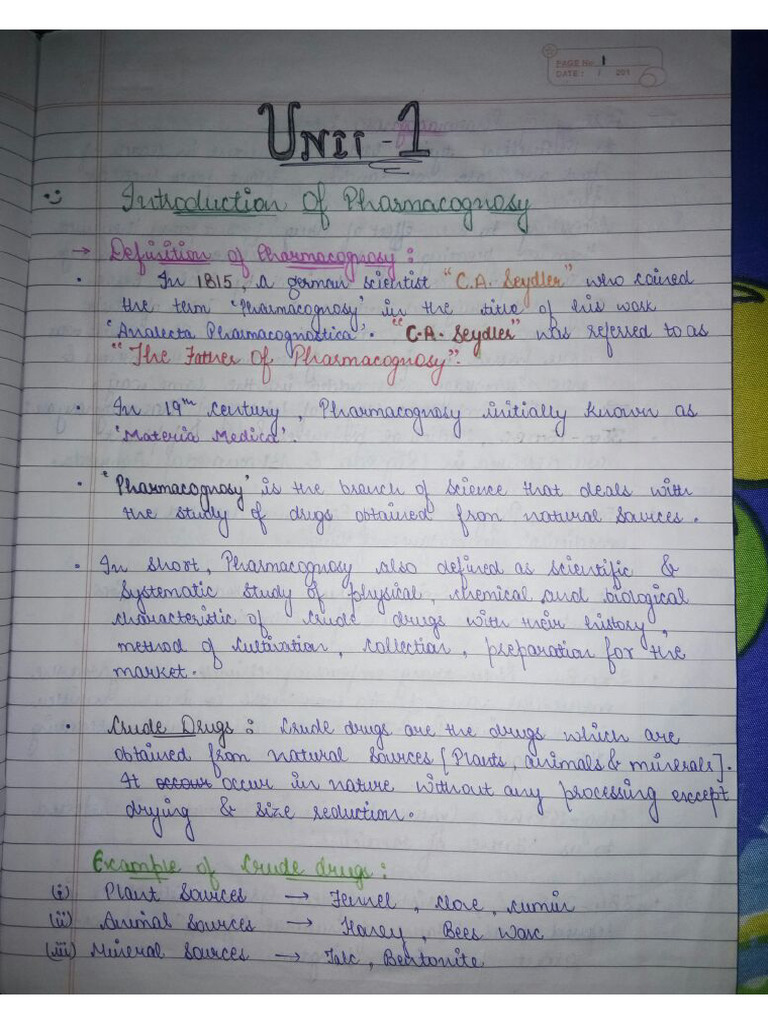 PAGE No. 1
DATE: / 201
Unit-1
Introduction of Pharmacognosy
→ Definition of Pharmacognosy:
• In 1815, a german scientist "C.A. Seydler" who coined
the term 'Pharmacognosy' in the title of his work
'Analecta Pharmacognostica'. "C.A. Seydler" was referred to as
"The Father Of Pharmacognosy".
• In 19th century, Pharmacognosy initially known as
'Materia Medica'.
• 'Pharmacognosy' is the branch of science that deals with
the study of drugs obtained from natural sources.
• In short, Pharmacognosy also defined as scientific &
systematic study of physical, chemical and biological
characteristic of crude drugs with their history,
method of cultivation, collection, preparation for the
market.
• Crude Drugs: Crude drugs are the drugs which are
obtained from natural sources [Plants, animals & minerals].
It occur in nature without any processing except
drying & size reduction.
Example of Crude drugs:
(i) Plant Sources → Fennel, clove, cumin
(ii) Animal Sources → Honey, Bees Wax
(iii) Mineral Sources → Talc, Bentonite